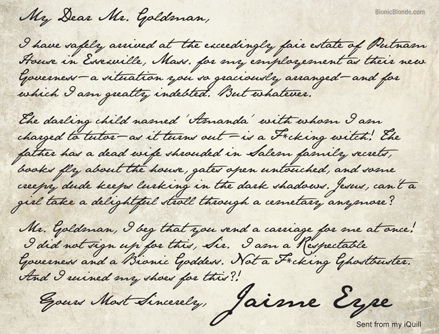 BionicBlonde.com
My Dear Mr. Goldman,
I have safely arrived at the exceedingly fair estate of Putnam
House in Essexville, Mass. for my employment as their new
Governess — a situation you so graciously arranged — and for
which I am greatly indebted. But whatever.
The darling child named 'Amanda' with whom I am
charged to tutor — as it turns out — is a F*cking witch! The
father has a dead wife shrouded in Salem family secrets,
books fly about the house, gates open untouched, and some
creepy dude keeps lurking in the dark shadows, Jesus, can't a
girl take a delightful stroll through a cemetary anymore?
Mr. Goldman, I beg that you send a carriage for me at once!
I did not sign up for this, Sir. I am a Respetable
Governess and a Bionic Goddess. Not a F*cking Ghostbuster.
And I ruined my shoes for this?!
Yours Most Sincerely, Jaime Eyre
Sent from my iQuill